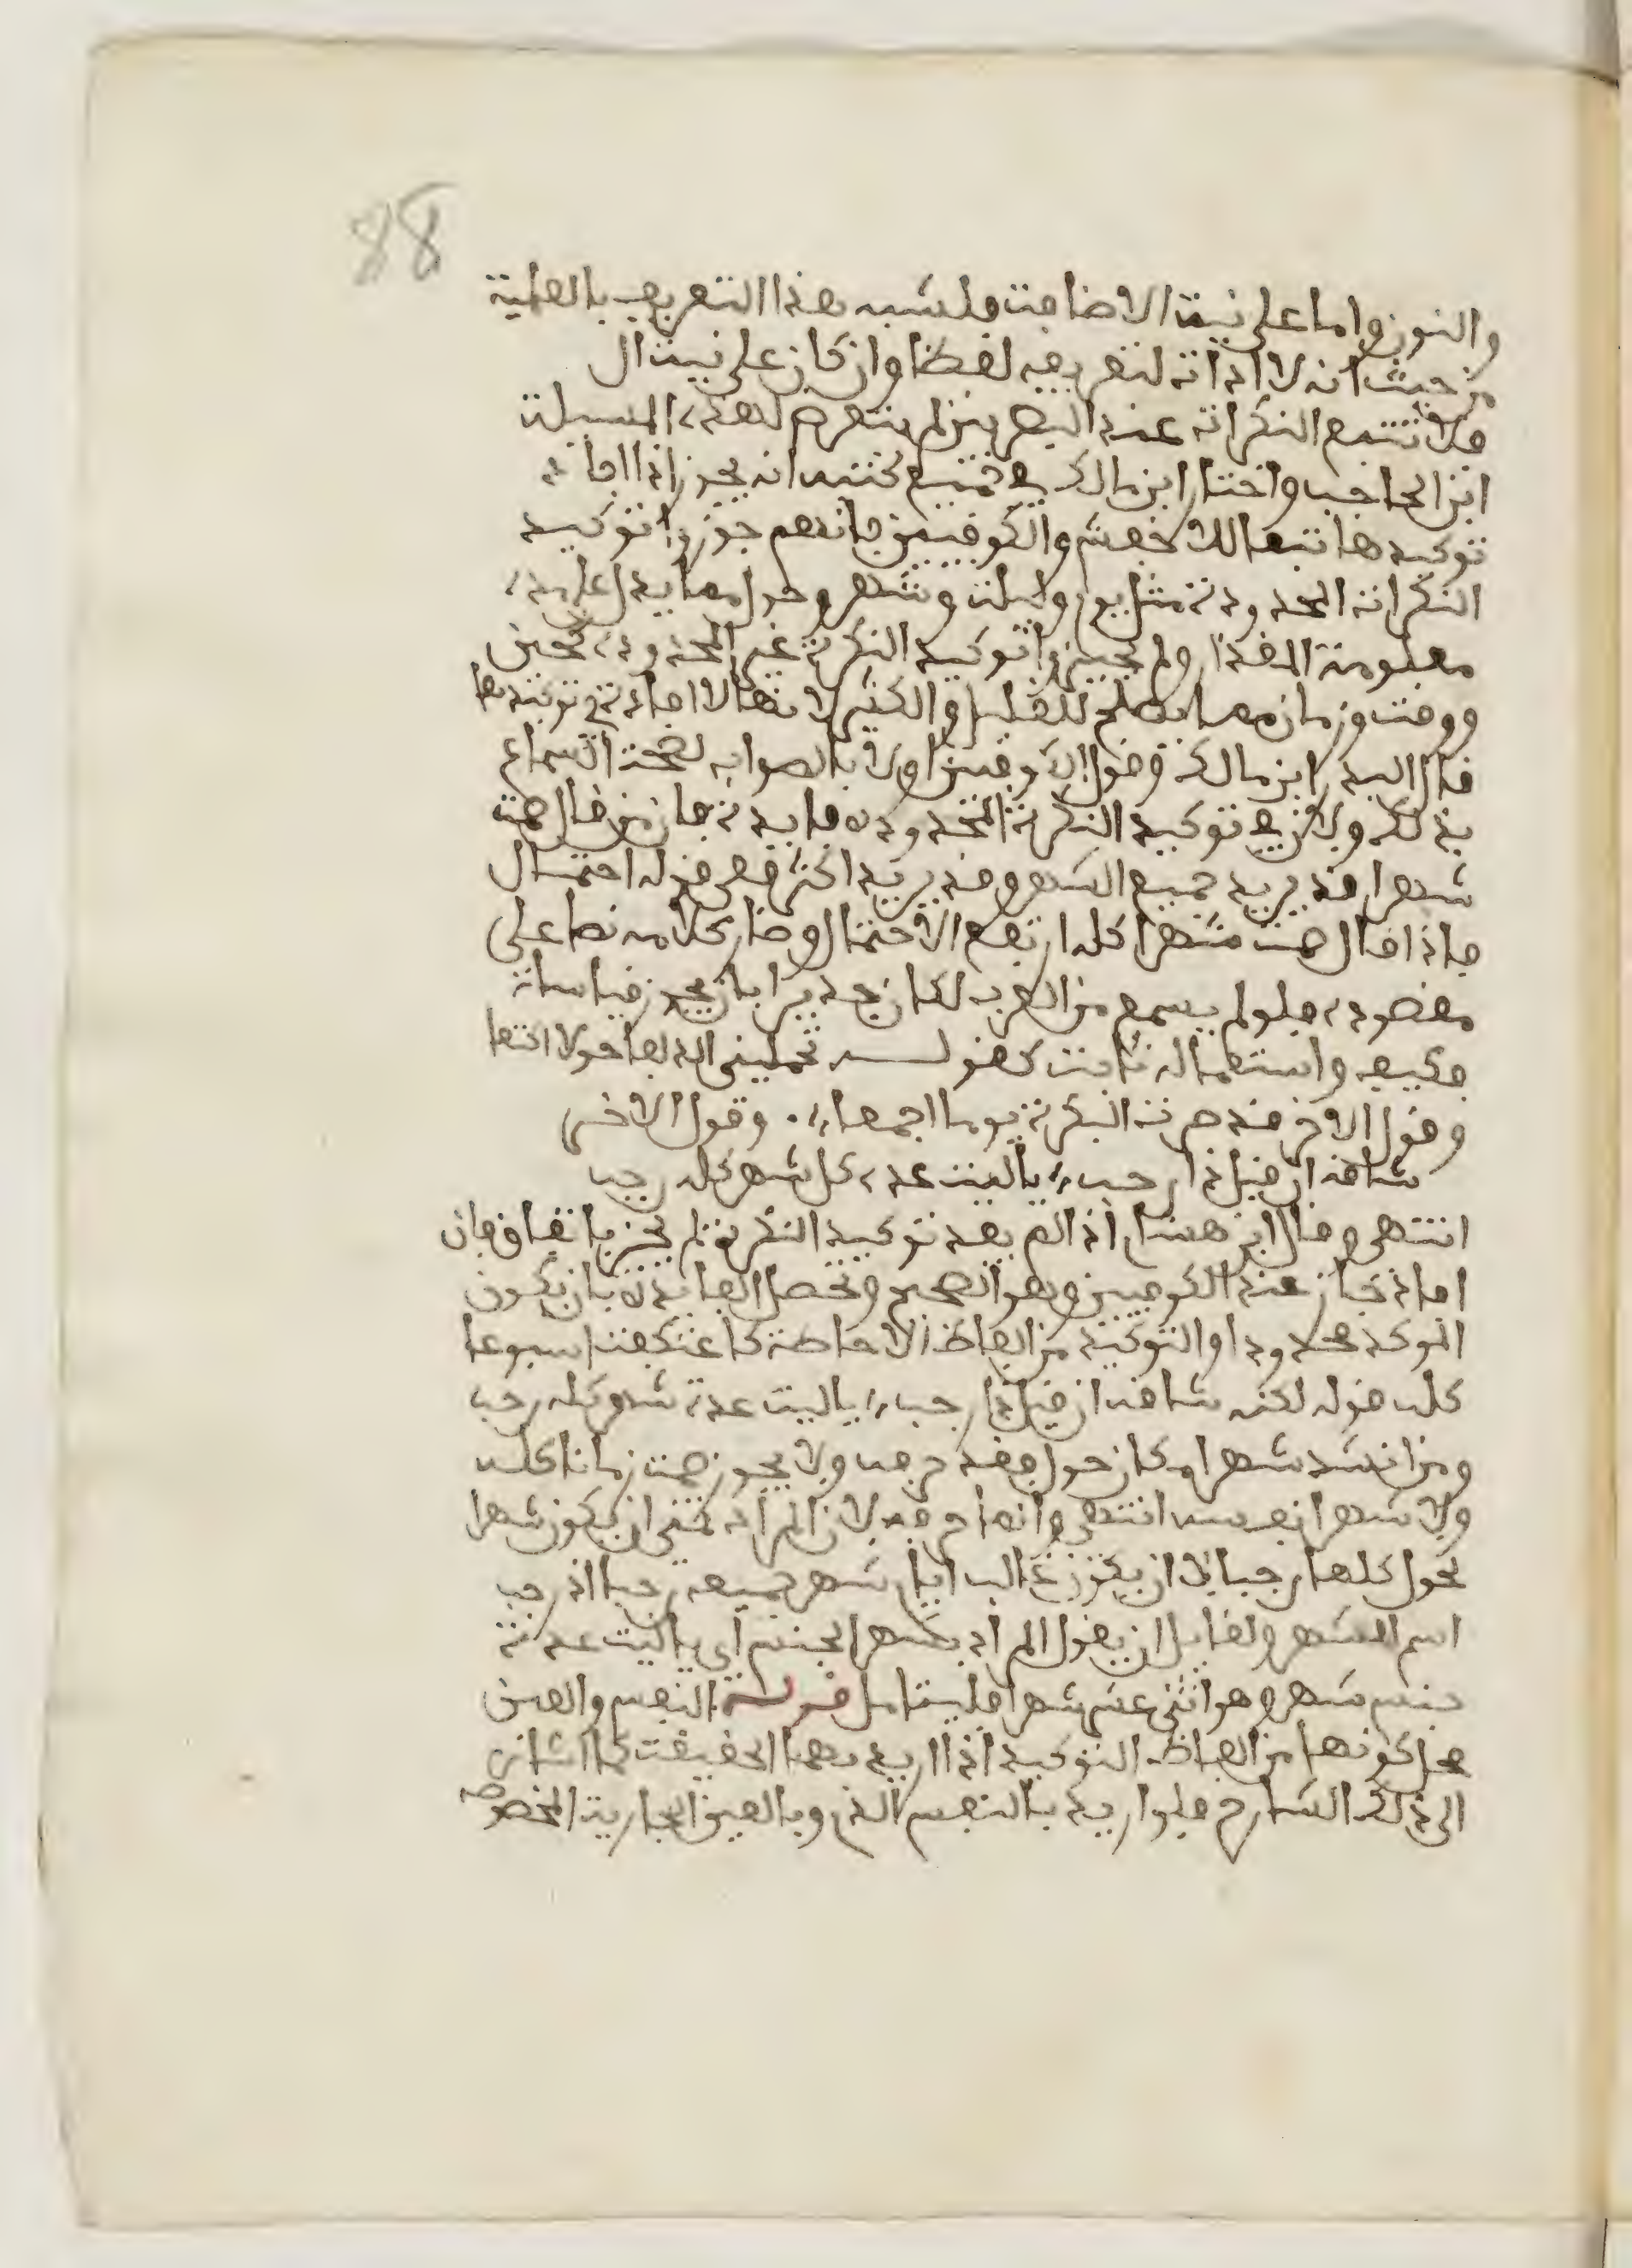 88
والنون واما على نية الاضافة فلشبه هذا التعريف بالعلمية
من حيث انه لا اداة لتعريفه لفظا وان كان على نية ال
فلا تتبع النكرات عند البصريين لم يتعرض لهذه المسيلة
ابن الحاجب واختار ابن مالك في جميع كتبه انه يجوز اذا افاد
توكيدها تبعا للاخفش والكوفيين فانهم جوزوا توكيد
النكرات المحدودة مثل يوم وليلة وشهر وحول مما يدل على مدة
معلومة المقدار ولم يجيزوا توكيد النكرة غير المحدودة كحين
ووقت وزمان مما يصلح للقليل والكثير لانها لا افادة في توكيدها
قال السيد ابن مالك وقول الكوفيين اولا بالصواب لصحة السماع
بذلك ولان في توكيد النكرة المحدوده فايدة فان من قال صمت
شهرا قد يريد جميع الشهر وقد يريد اكثره ففي قوله احتمال
فاذا قال صمت شهرا كله ارتفع الاحتمال وصار كلامه نصا على
مقصوده فلو لم يسمع من العرب لكان جديرا بان يجوز قياسا
فكيف واستعماله ثابت كقولـــه تحملني الذلفا حولا اكتعا
وقول الاخر قد صرت البكرة يوما اجمعا . وقول الاخر
شاقه ان قيل ذا رجب يا ليت عدة كل شهر كله رجب
انتهى وقال ابن هشام اذا لم يفد توكيد النكرة لم يجز باتفاق وان
افاد جاز عند الكوفيين وهو الصحيح وتحصل الفايدة بان يكون
الموكد محدودا والتوكيد من الفاظ الاحاطة كاعتكفت اسبوعا
كله قوله لكنه شاقه ان قيل ذا رجب يا ليت عدة شهر كله رجب
ومن انشد شهرا مكان حول فقد حرفه ولا يجوز صمت زمانا كله
ولا شهرا نفسه انتهى وانما حرفه لان المراد تمنى ان يكون شهرا
لحول كلها رجبا لا ان يكون غالب ايام شهر جميعه رجبا اذ رجب
اسم الشهر ولقايل ان يقول المراد بشهر الجنس اي يا ليت عدة
جنس شهر وهو اثنى عشر شهرا فليتامل قولـه النفس والعين
محل كونهما من الفاظ التوكيد اذا اريد بهما الحقيقة كما اشار
الى ذلك الشارح فلو اريد بالنفس الدم وبالعين الجارية المخصوصة